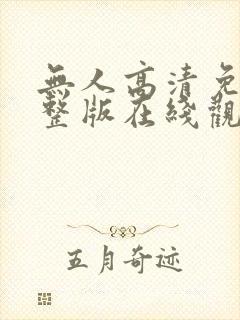 無人高清免
整版在綫觀
五月奇迹